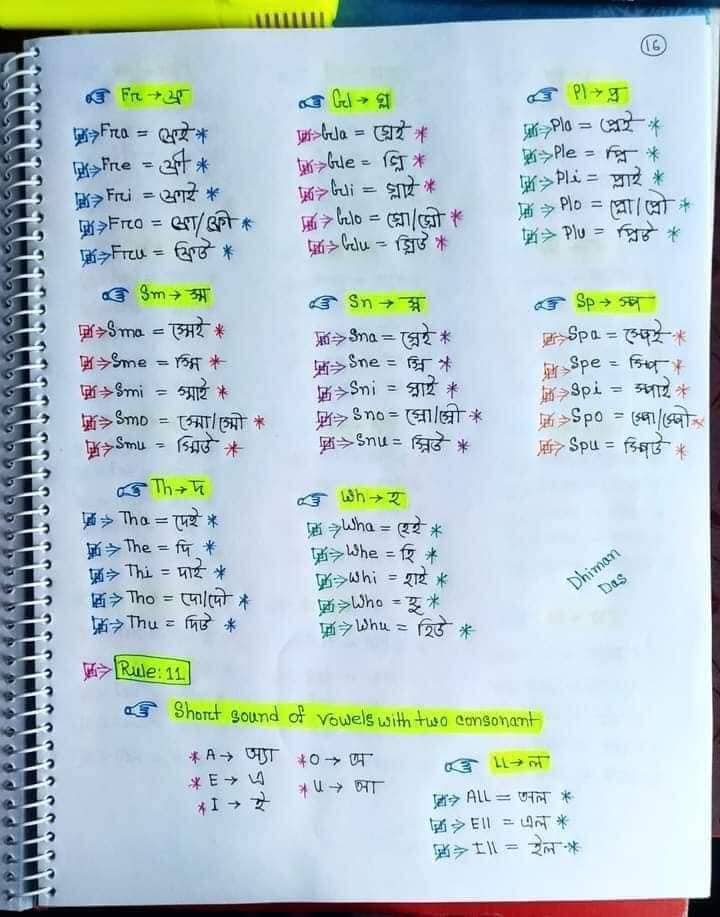 16
Fr → ফ্র
Fra = ফ্রেই *
Fre = ফ্রী *
Fri = ফ্রাই *
Fro = ফ্রো/ফ্রৌ *
Fru = ফ্রিউ *
Gl → গ্ল
Gla = গ্লেই *
Gle = গ্লি *
Gli = গ্লাই *
Glo = গ্লো/গ্লৌ *
Glu = গ্লিউ *
Pl → প্ল
Pla = প্লেই *
Ple = প্লি *
Pli = প্লাই *
Plo = প্লো/প্লৌ *
Plu = প্লিউ *
Sm → স্ম
Sma = স্মেই *
Sme = স্মি *
Smi = স্মাই *
Smo = স্মো/স্মৌ *
Smu = স্মিউ *
Sn → স্ন
Sna = স্নেই *
Sne = স্নি *
Sni = স্নাই *
Sno = স্নো/স্নৌ *
Snu = স্নিউ *
Sp → স্প
Spa = স্পেই *
Spe = স্পি *
Spi = স্পাই *
Spo = স্পো/স্পৌ *
Spu = স্পিউ *
Th → দ
Tha = দেই *
The = দি *
Thi = দাই *
Tho = দো/দৌ *
Thu = দিউ *
Wh → হ
Wha = হেই *
Whe = হি *
Whi = হাই *
Who = হু *
Whu = হিউ *
Dhiman
Das
Rule: 11
Short sound of vowels with two consonant
* A → অ্যা
* E → এ
* I → ই
* O → অ
* U → আ
LL → ল
ALL = অল *
Ell = এল *
Ill = ইল *